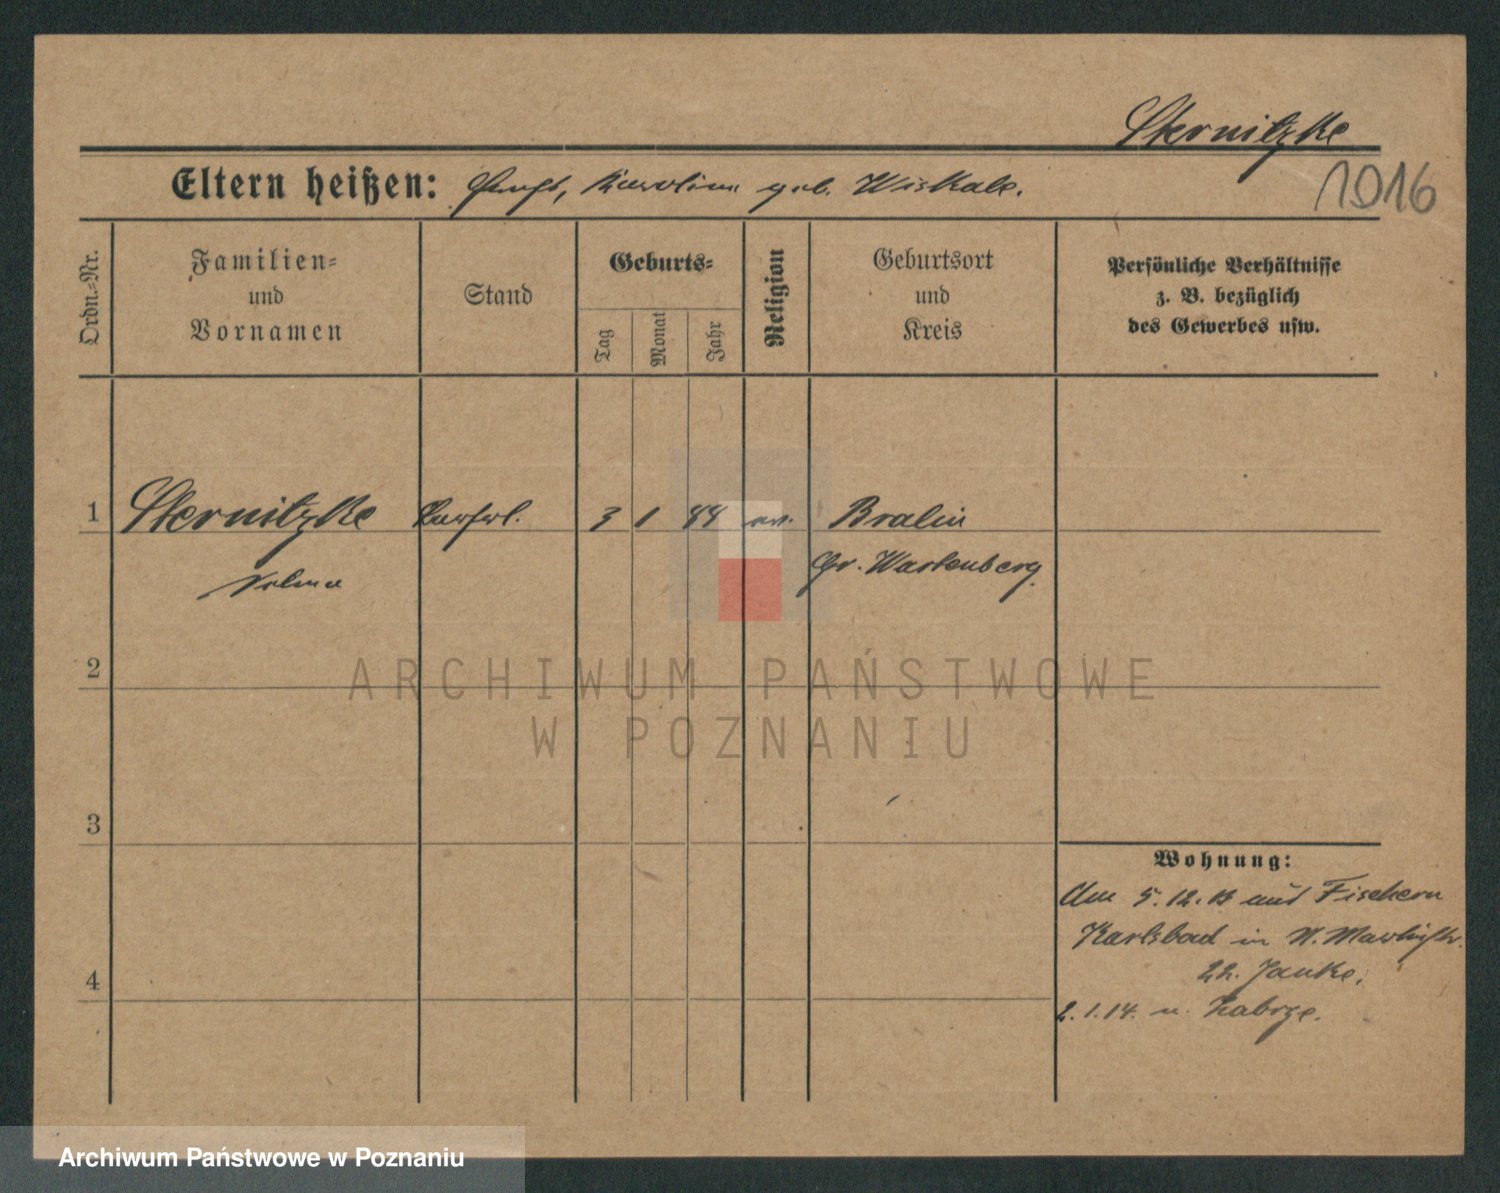 Sternitzke
Eltern heißen: Karoline geb. Wiskale.
1916
Ordn.-Nr.
Familien-
und
Vornamen
Stand
Geburts-
Tag
Monat
Jahr
Religion
Geburtsort
und
Kreis
Persönliche Verhältnisse
z. B. bezüglich
des Gewerbes usw.
1 Sternitzke 3 1 ev. Bralin
Gr. Wartenberg.
2
ARCHIWUM PAŃSTWOWE
W POZNANIU
3
4
Wohnung:
Am 5.12.13 aus Fischern
Karlsbad in
22. Janke.
2.1.14. n. Zabrze.
Archiwum Państwowe w Poznaniu